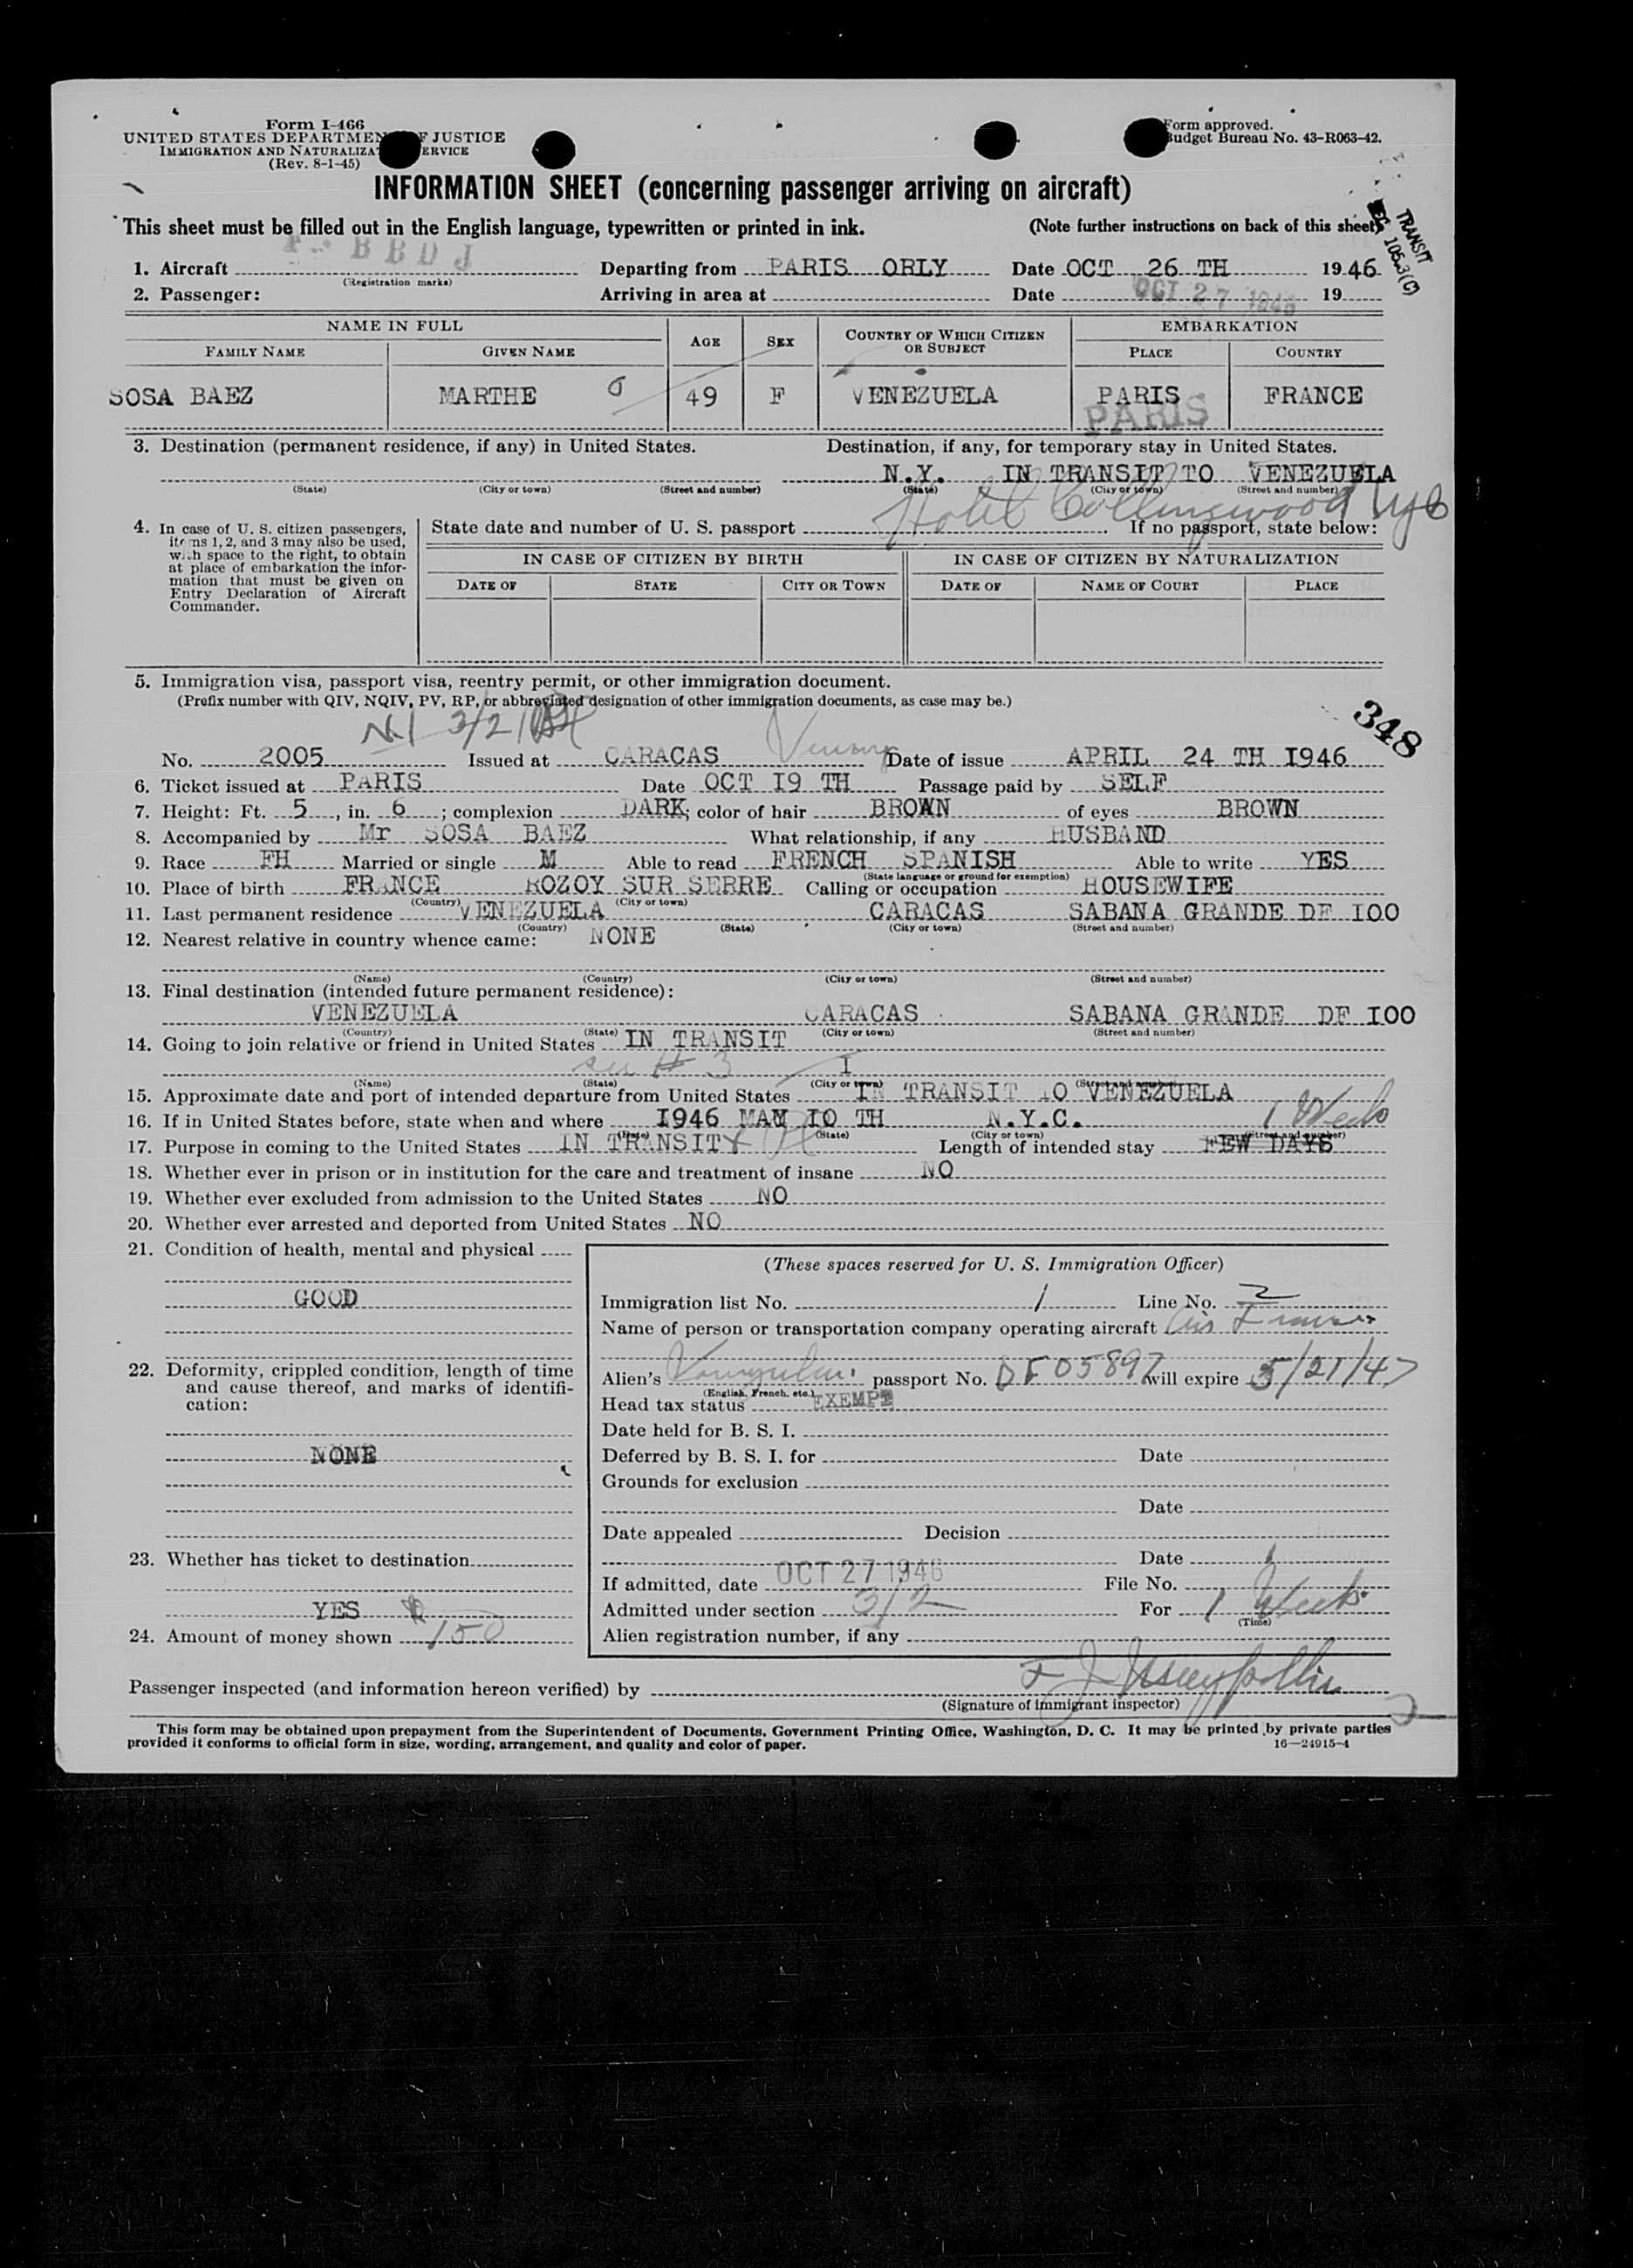 Form I-466
UNITED STATES DEPARTMEN F JUSTICE
IMMIGRATION AND NATURALIZA ERVICE
(Rev. 8-1-45)
Form approved.
Budget Bureau No. 43-R063-42.
INFORMATION SHEET (concerning passenger arriving on aircraft)
This sheet must be filled out in the English language, typewritten or printed in ink. (Note further instructions on back of this sheet)
TRANSIT
SEC 105.3(C)
1. Aircraft F- BBDJ Departing from PARIS ORLY Date OCT 26 TH 1946
(Registration marks)
2. Passenger: Arriving in area at Date OCT 27 1946 19
NAME IN FULL AGE SEX COUNTRY OF WHICH CITIZEN OR SUBJECT EMBARKATION
FAMILY NAME GIVEN NAME PLACE COUNTRY
SOSA BAEZ MARTHE 49 F VENEZUELA PARIS FRANCE
PARIS
3. Destination (permanent residence, if any) in United States. Destination, if any, for temporary stay in United States.
N.Y. IN TRANSIT TO VENEZUELA
(State) (City or town) (Street and number) (State) (City or town) (Street and number)
Hotel Collingwood NYC
4. In case of U. S. citizen passengers, items 1, 2, and 3 may also be used, with space to the right, to obtain at place of embarkation the information that must be given on Entry Declaration of Aircraft Commander.
State date and number of U. S. passport If no passport, state below:
IN CASE OF CITIZEN BY BIRTH IN CASE OF CITIZEN BY NATURALIZATION
DATE OF STATE CITY OR TOWN DATE OF NAME OF COURT PLACE
5. Immigration visa, passport visa, reentry permit, or other immigration document.
(Prefix number with QIV, NQIV, PV, RP, or abbreviated designation of other immigration documents, as case may be.)
348
N.I 3/2
No. 2005 Issued at CARACAS Date of issue APRIL 24 TH I946
6. Ticket issued at PARIS Date OCT I9 TH Passage paid by SELF
7. Height: Ft. 5, in. 6; complexion DARK; color of hair BROWN of eyes BROWN
8. Accompanied by Mr SOSA BAEZ What relationship, if any HUSBAND
9. Race FH Married or single M Able to read FRENCH SPANISH Able to write YES
(State language or ground for exemption)
10. Place of birth FRANCE ROZOY SUR SERRE Calling or occupation HOUSEWIFE
(Country) (City or town)
11. Last permanent residence VENEZUELA CARACAS SABANA GRANDE DF IOO
(Country) (State) (City or town) (Street and number)
12. Nearest relative in country whence came: NONE
(Name) (Country) (City or town) (Street and number)
13. Final destination (intended future permanent residence):
VENEZUELA CARACAS SABANA GRANDE DF IOO
(Country) (State) (City or town) (Street and number)
14. Going to join relative or friend in United States IN TRANSIT
see # 3 I
(Name) (State) (City or town) (Street and number)
15. Approximate date and port of intended departure from United States IN TRANSIT TO VENEZUELA
16. If in United States before, state when and where I946 MAY IO TH N.Y.C. 1 Week
(Date) (State) (City or town) (Street and number)
17. Purpose in coming to the United States IN TRANSIT Length of intended stay FEW DAYS
18. Whether ever in prison or in institution for the care and treatment of insane NO
19. Whether ever excluded from admission to the United States NO
20. Whether ever arrested and deported from United States NO
21. Condition of health, mental and physical
GOOD
22. Deformity, crippled condition, length of time and cause thereof, and marks of identification:
NONE
23. Whether has ticket to destination
YES
24. Amount of money shown 150
(These spaces reserved for U. S. Immigration Officer)
Immigration list No. 1 Line No. 2
Name of person or transportation company operating aircraft Air France
Alien's Venezuelan passport No. DF 05897 will expire 5/21/47
(English, French, etc.)
Head tax status EXEMPT
Date held for B. S. I.
Deferred by B. S. I. for Date
Grounds for exclusion
Date
Date appealed Decision
Date
If admitted, date OCT 27 1946 File No.
Admitted under section 3/2 For 1 Week
(Time)
Alien registration number, if any
Passenger inspected (and information hereon verified) by
(Signature of immigrant inspector)
This form may be obtained upon prepayment from the Superintendent of Documents, Government Printing Office, Washington, D. C. It may be printed by private parties
provided it conforms to official form in size, wording, arrangement, and quality and color of paper. 16—24915-4